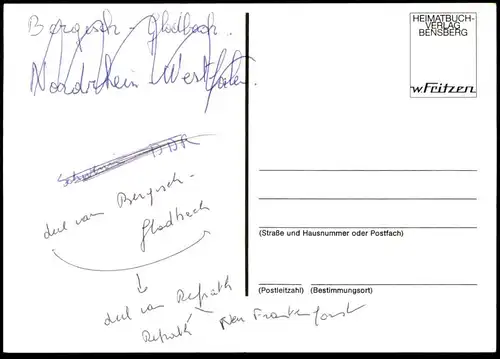 Bergisch - Gladbach.
Nordrhein Westfalen.
HEIMATBUCH-
VERLAG
BENSBERG
W Fritzen
DDR
deel van Bergisch-
Gladbach
(Straße und Hausnummer oder Postfach)
(Postleitzahl) (Bestimmungsort)
deel van Refrath
Refrath Neu Frankenforst